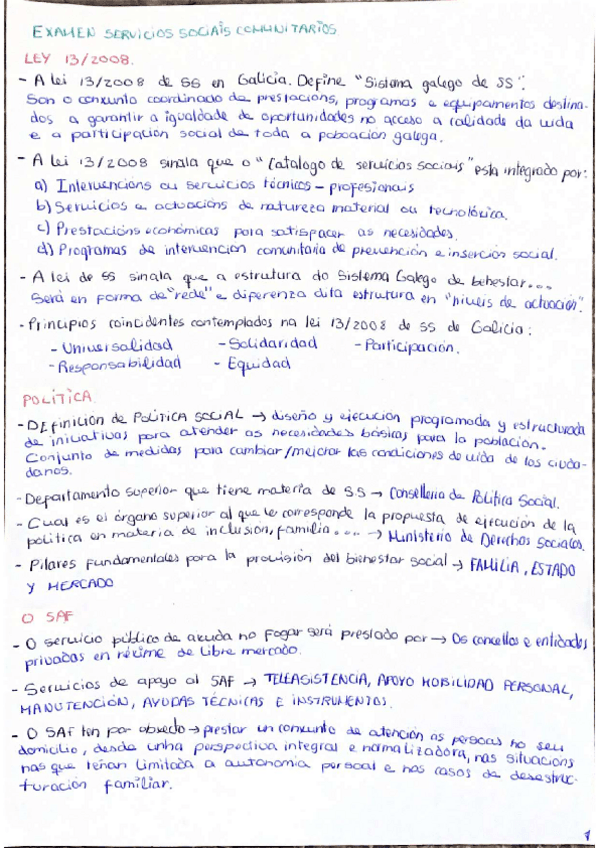 EXAMEN SERVICIOS SOCIAIS COMUNITARIOS
LEY 13/2008.
- A lei 13/2008 de SS en Galicia. Define "Sistema galego de SS".
Son o conxunto coordinado de prestacións, programas e equipamentos destina-
dos a garantir a igualdade de oportunidades no acceso a calidade da vida
e a participación social de toda a poboación galega.
- A lei 13/2008 sinala que o "Catalogo de servicios sociais" esta integrado por:
a) Intervencións ou servicios técnicos - profesionais
b) Servicios e actuacións de natureza material ou tecnolóxica.
c) Prestacións económicas para satisfacer as necesidades.
d) Programas de intervención comunitaria de prevención e inserción social.
- A lei de SS sinala que a estrutura do Sistema Galego de benestar...
Será en forma de "rede" e diferenza dita estrutura en "niveis de actuación".
- Principios coincidentes contemplados na lei 13/2008 de SS de Galicia:
- Universalidad - Solidaridad - Participación.
- Responsabilidad - Equidad
POLÍTICA.
- DEfinición de POLÍTICA SOCIAL → diseño y ejecución programada y estructurada
de iniciativas para atender as necesidades básicas para la población.
Conjunto de medidas para cambiar/mejorar las condiciones de vida de los ciuda-
danos.
- Departamento superior que tiene materia de SS → Conselleria de Política Social.
- Cual es el órgano superior al que le corresponde la propuesta de ejecución de la
política en materia de inclusión, familia.... → Ministerio de Derechos Sociales.
- Pilares fundamentales para la provisión del bienestar social → FAMILIA, ESTADO
Y MERCADO
O SAF
- O servicio público de axuda no fogar será prestado por → Os concellos e entidades
privadas en réxime de libre mercado.
- Servicios de apoyo al SAF → TELEASISTENCIA, APOYO MOBILIDAD PERSONAL,
MANUTENCIÓN, AYUDAS TÉCNICAS E INSTRUMENTOS.
- O SAF ten por obxedo → prestar un conxunto de atención as persoas no seu
domicilio, desde unha perspectiva integral e normalizadora, nas situacións
nas que teñan limitada a autonomia persoal e nos casos de desestruc-
turación familiar.
1